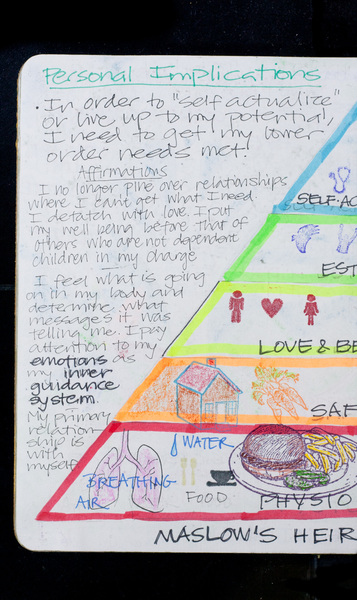 Personal Implications
• In order to "self actualize"
or live up to my potential,
I need to get my lower
order needs met.
Affirmations
I no longer pine over relationships
where I can't get what I need.
I detatch with love. I put
my well being before that of
others who are not dependent
children in my charge.
I feel what is going
on in my body and
determine what
message it was
telling me. I pay
attention to my
emotions as
my inner
guidance
system.
My primary
relation-
ship is
with
myself.
SELF-AC
EST
LOVE & BE
SAF
WATER
BREATHING
AIR
FOOD
PHYSIO
MASLOW'S HEIR